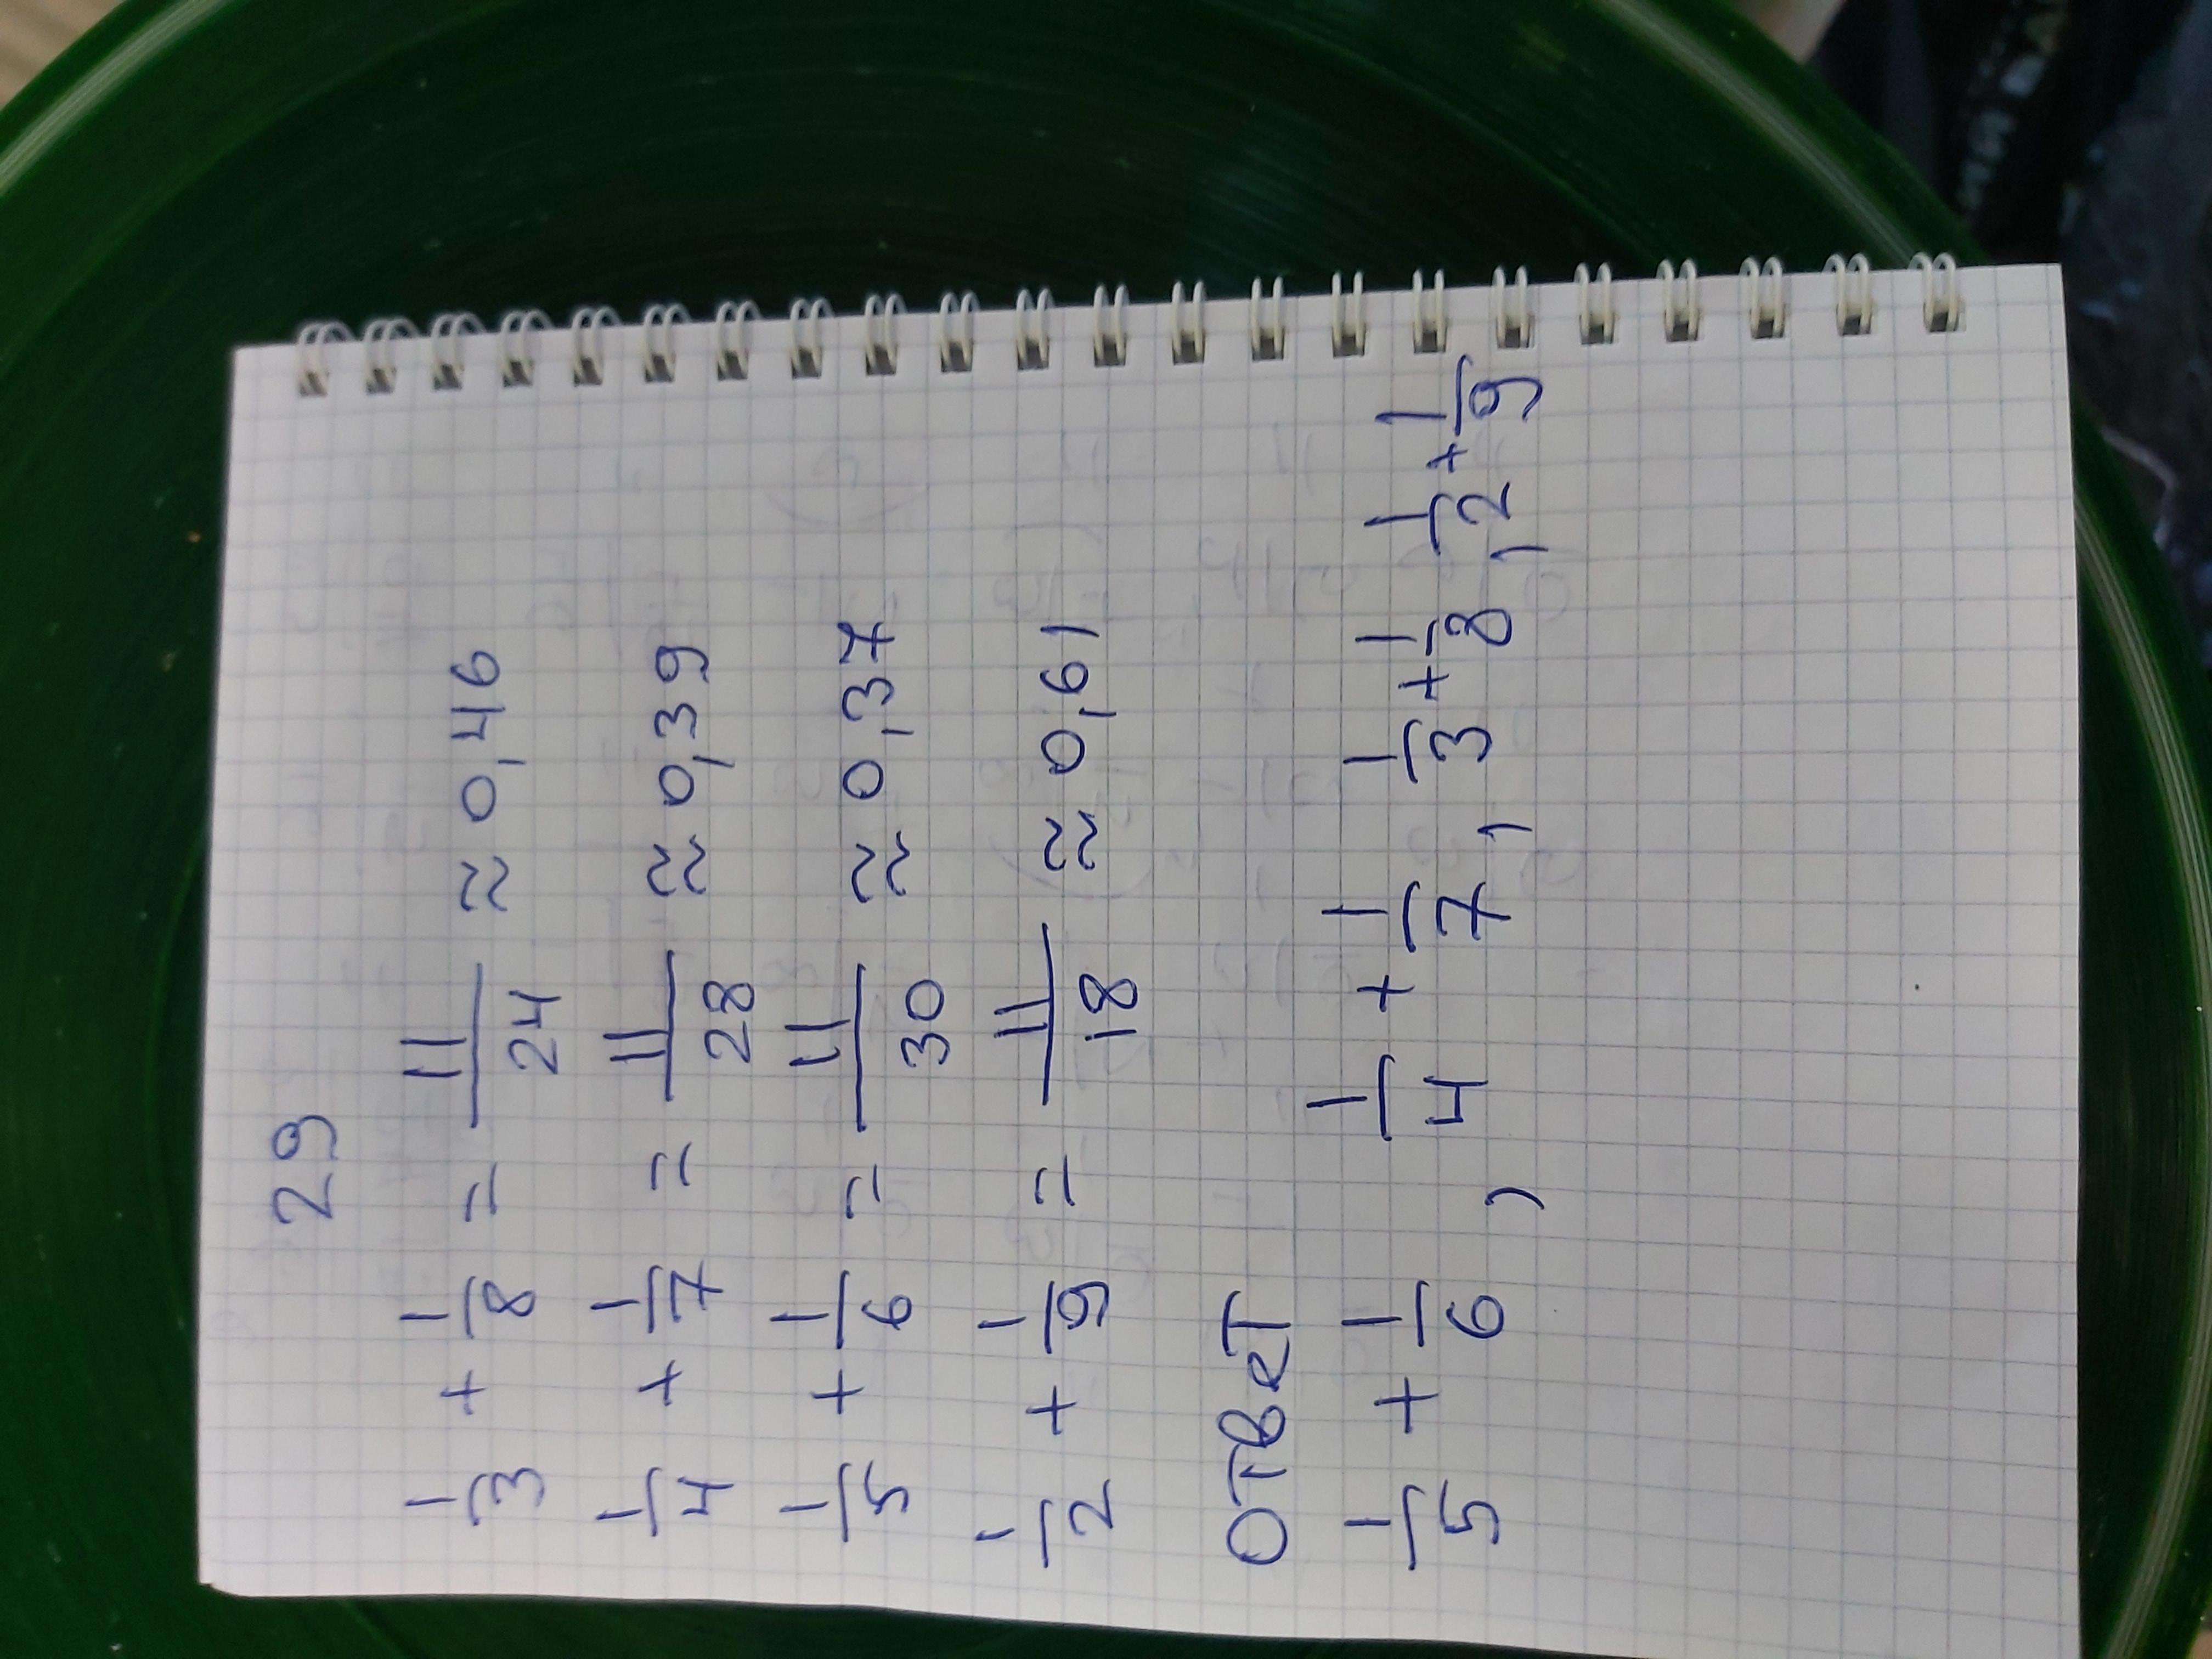 29
1/3 + 1/8 = 11/24 ≈ 0,46
1/4 + 1/7 = 11/28 ≈ 0,39
1/5 + 1/6 = 11/30 ≈ 0,37
1/2 + 1/9 = 11/18 ≈ 0,61
ОТВЕТ
1/5 + 1/6 , 1/4 + 1/7 , 1/3 + 1/8 , 1/2 + 1/9